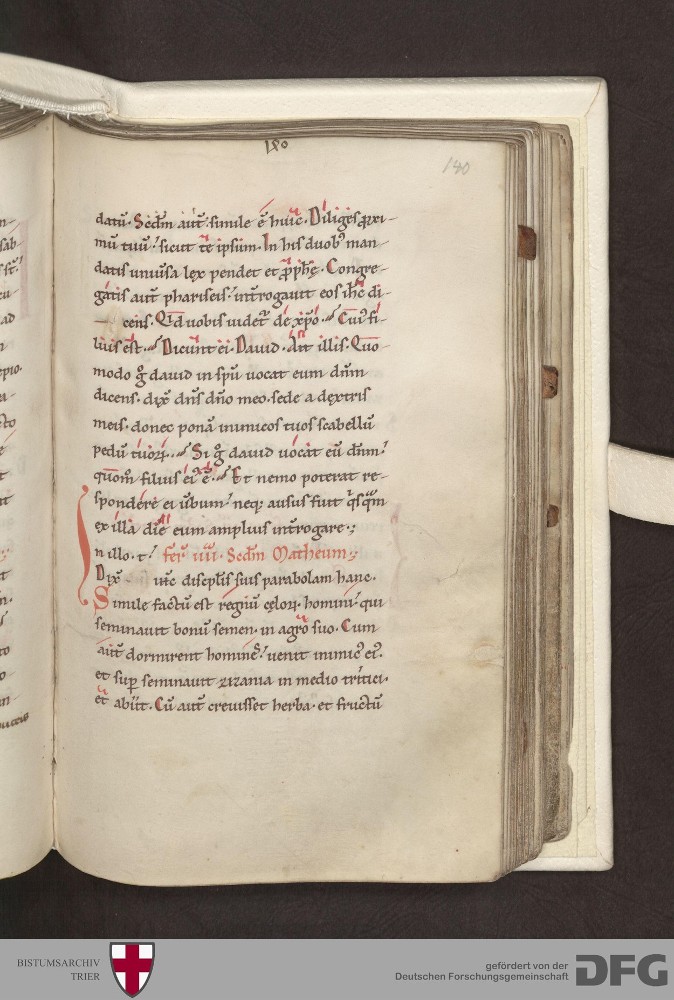 140
datū. Scdm̄ aut̄ simile ē huic. Diliges ꝓxi-
mū tuū sicut te ipsum. In his duob; man-
datis uniusa lex pendet et ꝓphe. Congre-
gatis aut̄ phariseis int̄rogauit eos ihc̄ di-
cens. Qid uobis uidet̄ de xp̄o. Cui; fi-
lius est. Dicunt ei. Dauid. Ait illis. Quo
modo g̊ dauid in sp̄u uocat eum dn̄m
dicens. dix̄ dn̄s dn̄o meo. sede a dextris
meis. donec ponā inimicos tuos scabellū
pedū tuoꝝ. Si g̊ dauid uocat eū dn̄m
quom̊ filius ei; ē. Et nemo poterat re-
spondere ei u̇bum neq; ausus fuit q̇sq̄m
ex illa die eum amplius int̄rogare.
In illo. t. fer̄ iiii. Scdm̄ Matheum
Dix̄ ihc discplis suis parabolam hanc.
Simile factū est regnū celoꝝ. homini qui
seminauit bonū semen. in agro suo. Cum
aut̄ dormirent homines uenit inimic; ei;.
et sup̱ seminauit zizania in medio tritici.
et abiit. Cū aut̄ creuisset herba. et fructū
BISTUMSARCHIV
TRIER
gefördert von der
Deutschen Forschungsgemeinschaft
DFG